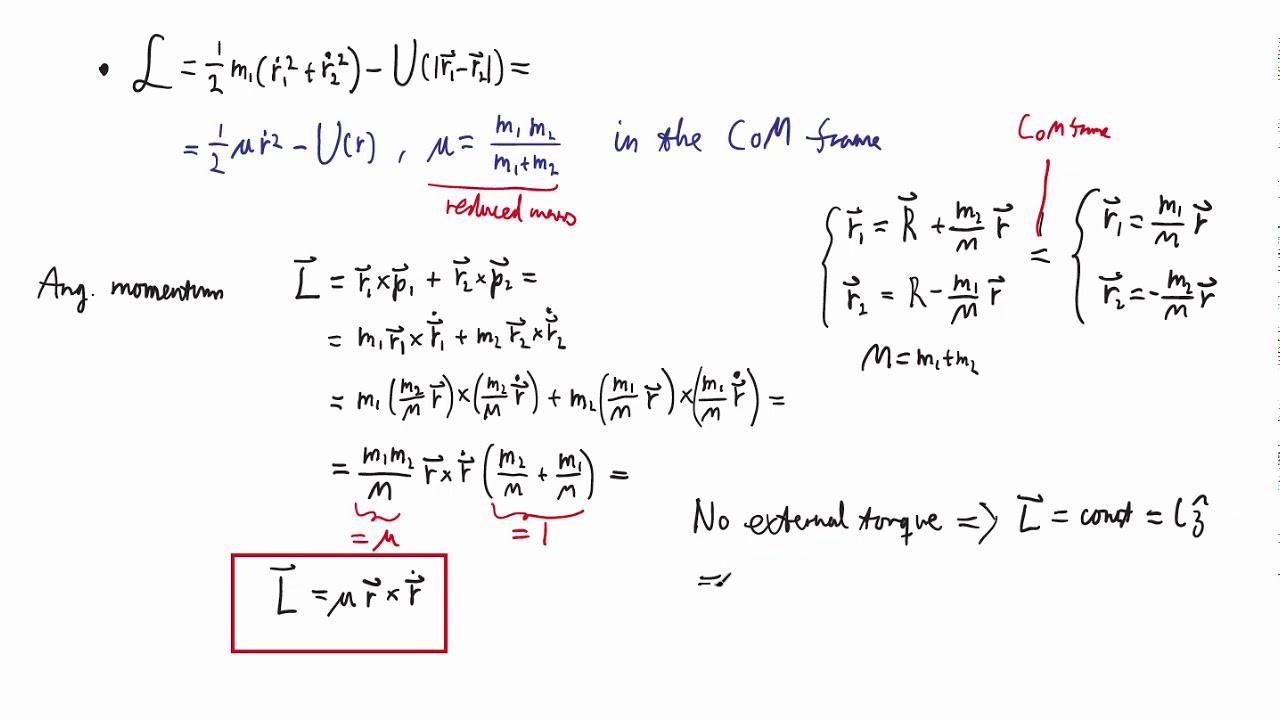 • ℒ = 1/2 m₁(ṙ₁² + ṙ₂²) − U(|r⃗₁−r⃗₂|) =
= 1/2 μṙ² − U(r) , μ = m₁m₂/(m₁+m₂) in the CoM frame
reduced mass
CoM frame
{ r⃗₁ = R⃗ + m₂/M r⃗ = { r⃗₁ = m₁/M r⃗
r⃗₂ = R − m₁/M r⃗ r⃗₂ = −m₂/M r⃗
M = m₁+m₂
Ang. momentum L⃗ = r⃗₁×p⃗₁ + r⃗₂×p⃗₂ =
= m₁r⃗₁×r⃗̇₁ + m₂r⃗₂×r⃗̇₂
= m₁(m₂/M r⃗)×(m₂/M r⃗̇) + m₂(m₁/M r⃗)×(m₁/M r⃗̇) =
= m₁m₂/M r⃗×r⃗̇ (m₂/M + m₁/M) =
= μ = 1
L⃗ = μr⃗×r⃗̇
No external torque => L⃗ = const = lẑ
=>